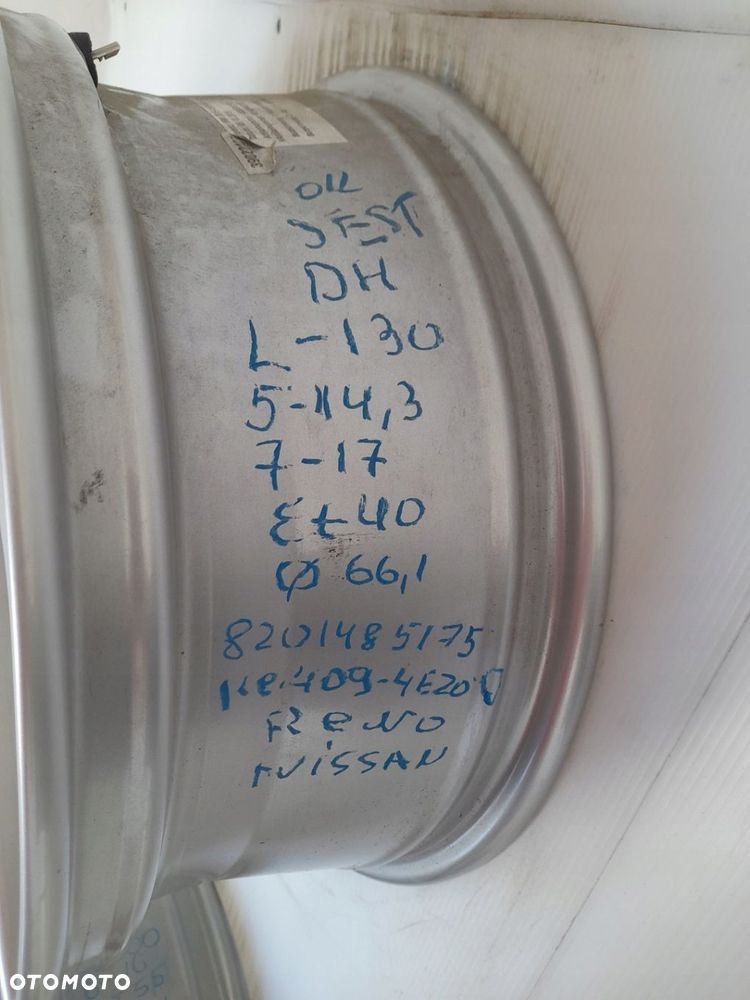 JEST
DH
L-130
5-114,3
7-17
Et 40
Ø 66,1
8201485175
KE409-4E200
RENO
NISSAN
OTOMOTO